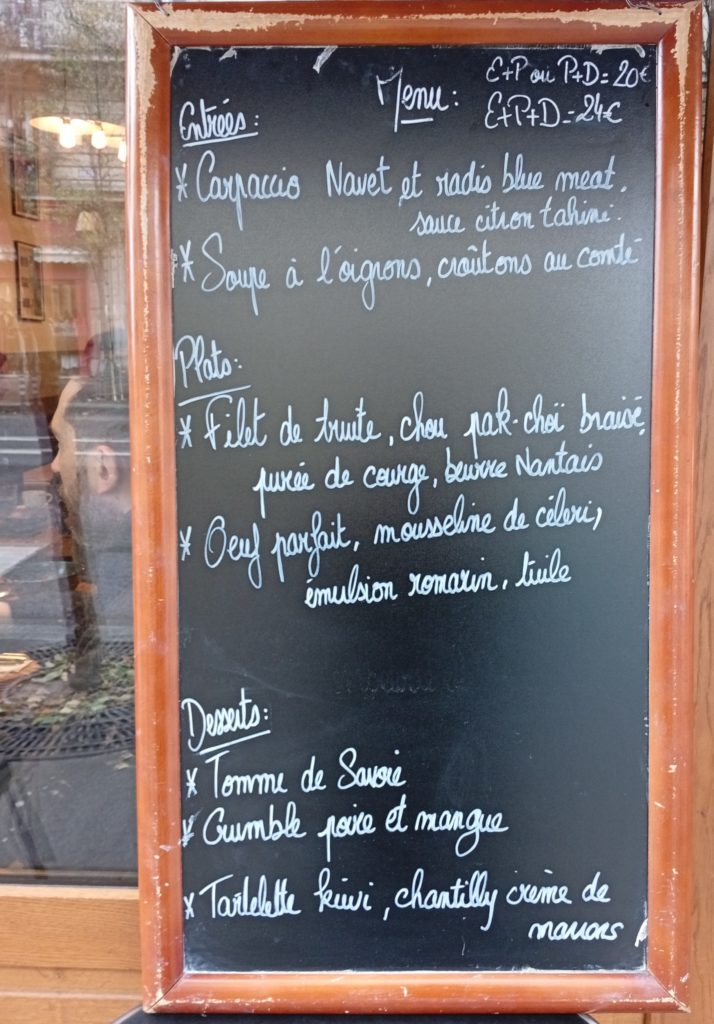 Menu:
E+P ou P+D = 20€
E+P+D = 24€
Entrées:
* Carpaccio Navet et radis blue meat,
sauce citron tahini.
* Soupe à l'oignons, croûtons au comté
Plats:
* Filet de truite, chou pak-choï braisé,
purée de courge, beurre Nantais
* Oeuf parfait, mousseline de céleri,
émulsion romarin, tuile
Desserts:
* Tomme de Savoie
* Crumble poire et mangue
* Tartelette kiwi, chantilly crème de
marrons